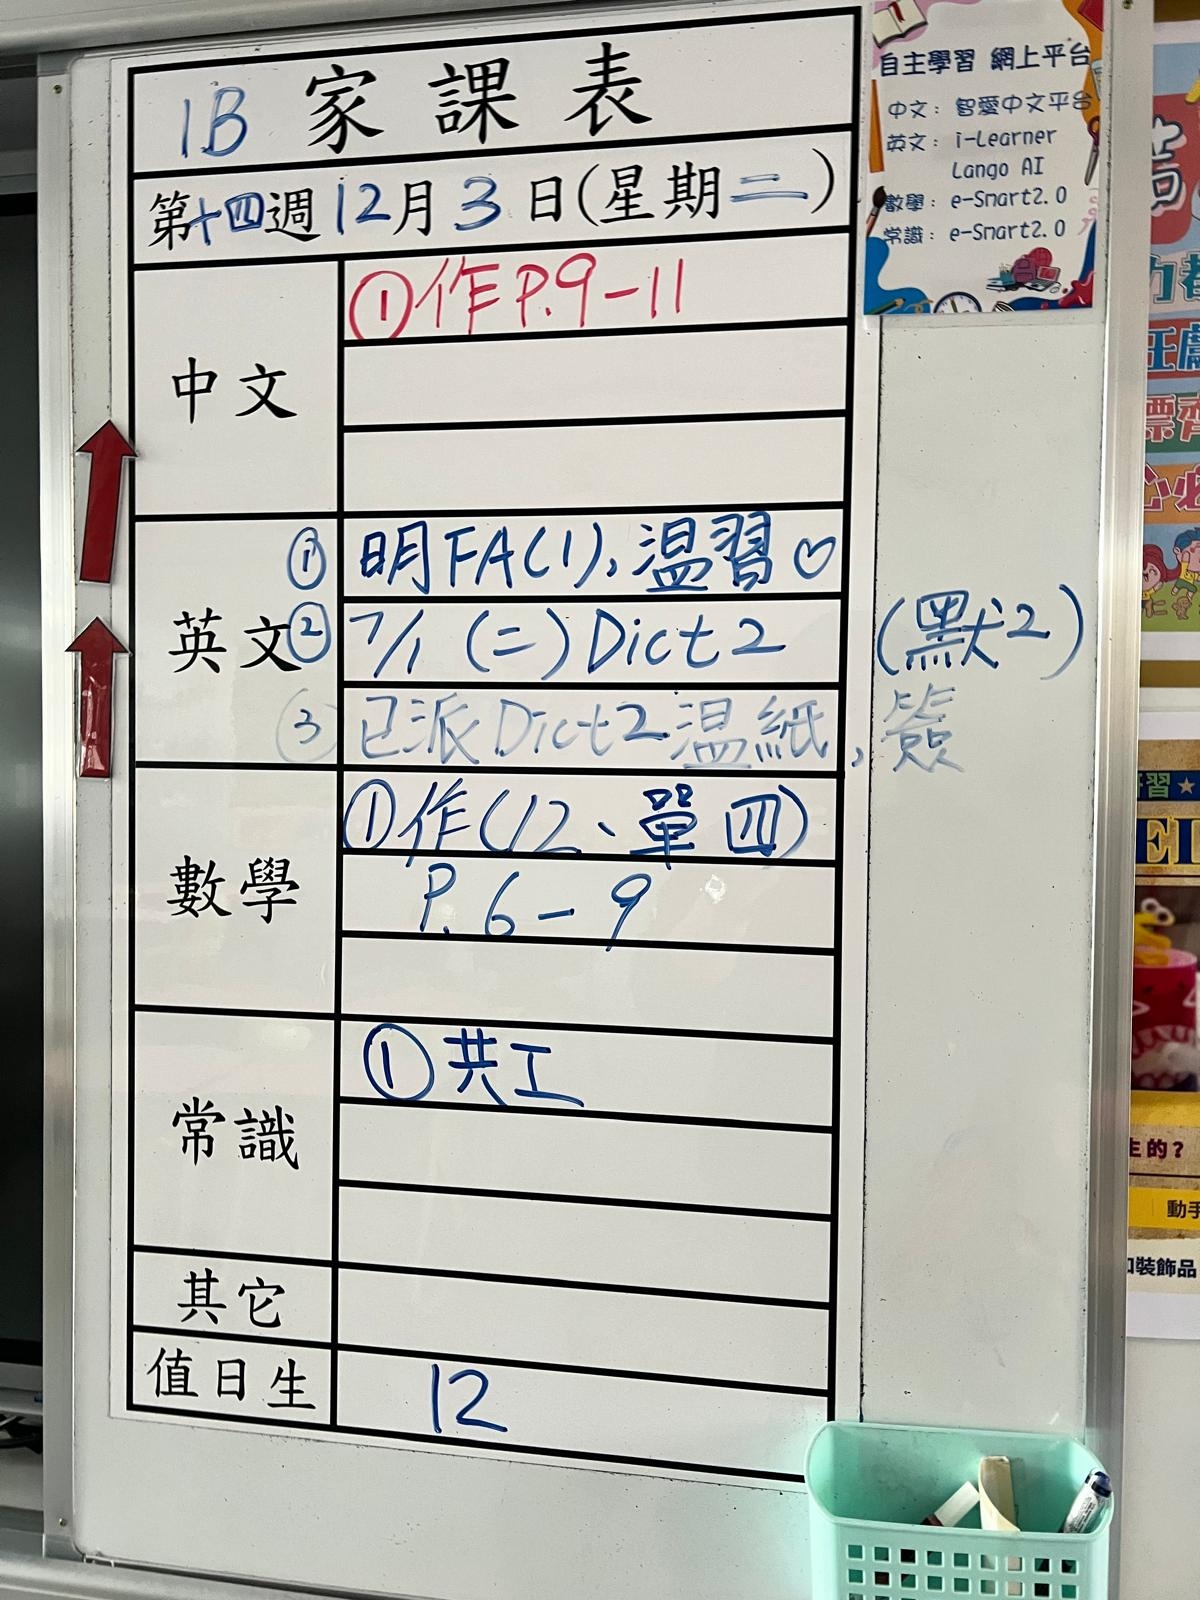 1B 家課表
第十四週12月3日(星期二)
中文
①作P.9-11
英文
①明FA(1),溫習♡
②7/1 (二) Dict 2 (默2)
③已派Dict 2 温紙,簽
數學
①作(12、單四)
P.6-9
常識
①共工
其它
值日生
12
自主學習 網上平台
中文: 智愛中文平台
英文: i-Learner
Lango AI
數學: e-Smart2.0
常識: e-Smart2.0
習★
生的?
動手
裝飾品